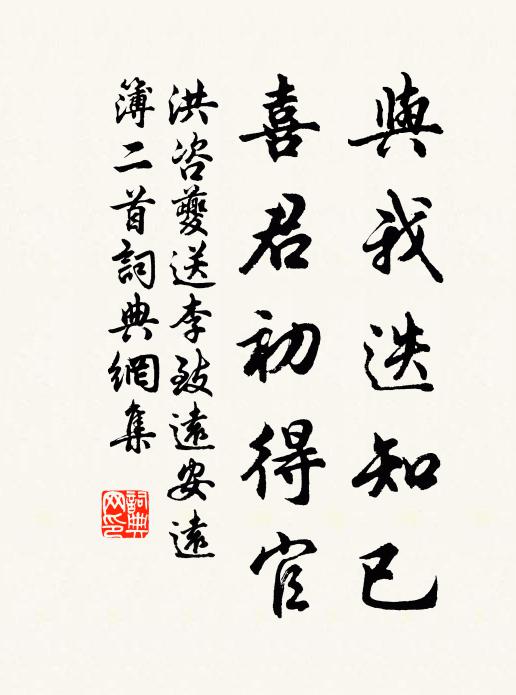 與我迭知已
喜君初得官
洪咨夔送李致遠安遠
簿二首詞典網集
詞典网印